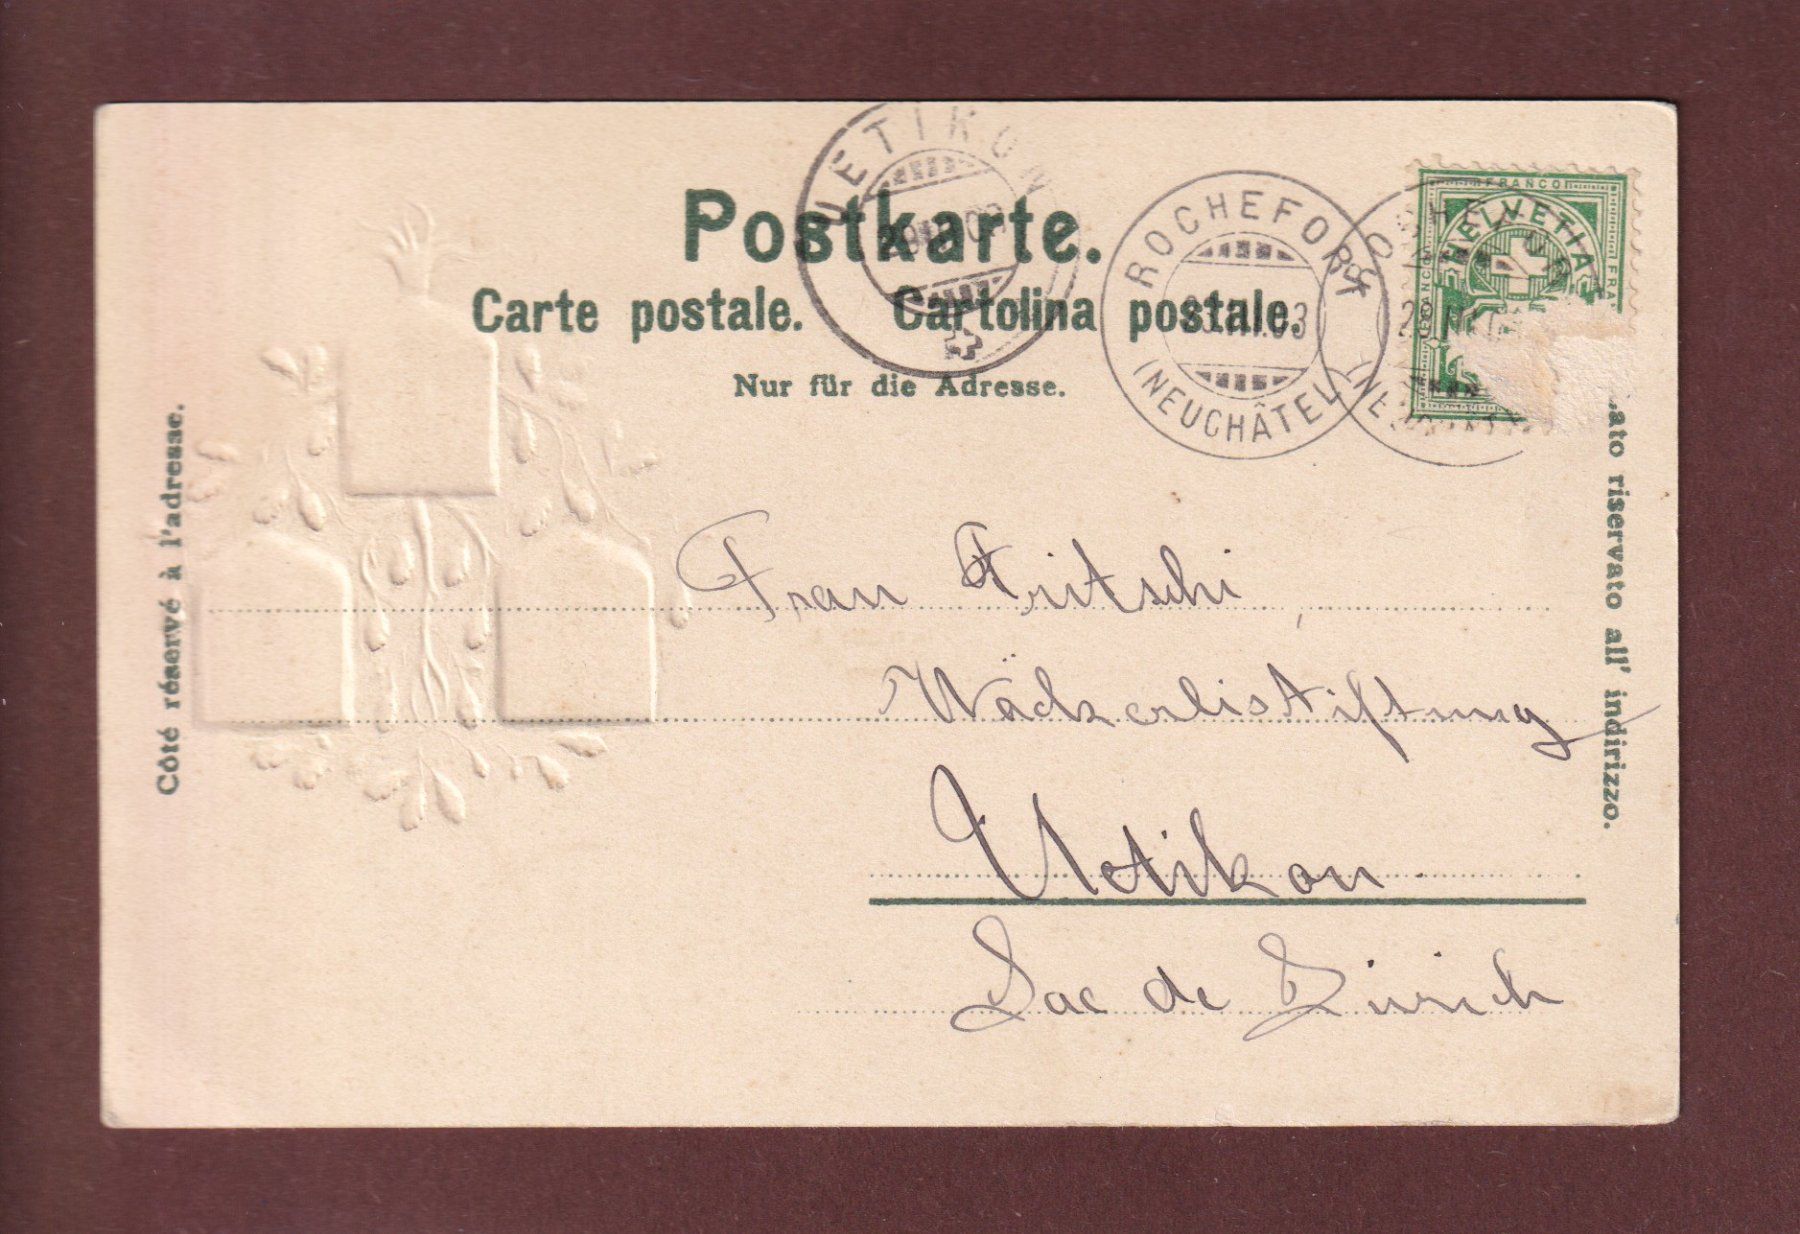 Postkarte.
Carte postale. Cartolina postale.
Nur für die Adresse.
Côté réservé à l'adresse.
ato riservato all' indirizzo.
UETIKON
ROCHEFORT
(NEUCHÂTEL)
FRANCO
HELVETIA
FRANCO
FRA
Frau Fritschi,
Wäckerlistiftung
Uetikon
Lac de Zürich